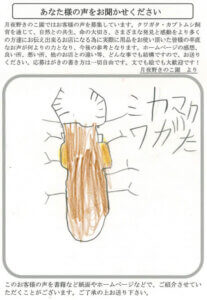 あなた様の声をお聞かせください
月夜野きのこ園ではお客様の声を募集しています。クワガタ・カブトムシ飼
育を通じて、自然との共生、命の大切さ、さまざまな発見と感動をより多く
の方達にお伝え出来るお店になる為に実際に用品をお使い頂いた皆様の率直
なお声が何よりの力となり、今後の参考となります。ホームページの感想、
良い所、悪い所、他のお店との違い等、どんな事でも結構ですので、お送り
ください。応募はがきの書き方は一切自由です。文でも絵でも大歓迎です！
月夜野きのこ園 より
ミヤマク
ワガタ
このお客様の声を書籍など紙面やホームページなどで、ご紹介させてい
ただくことがございます。ご了承の上お送り下さい。